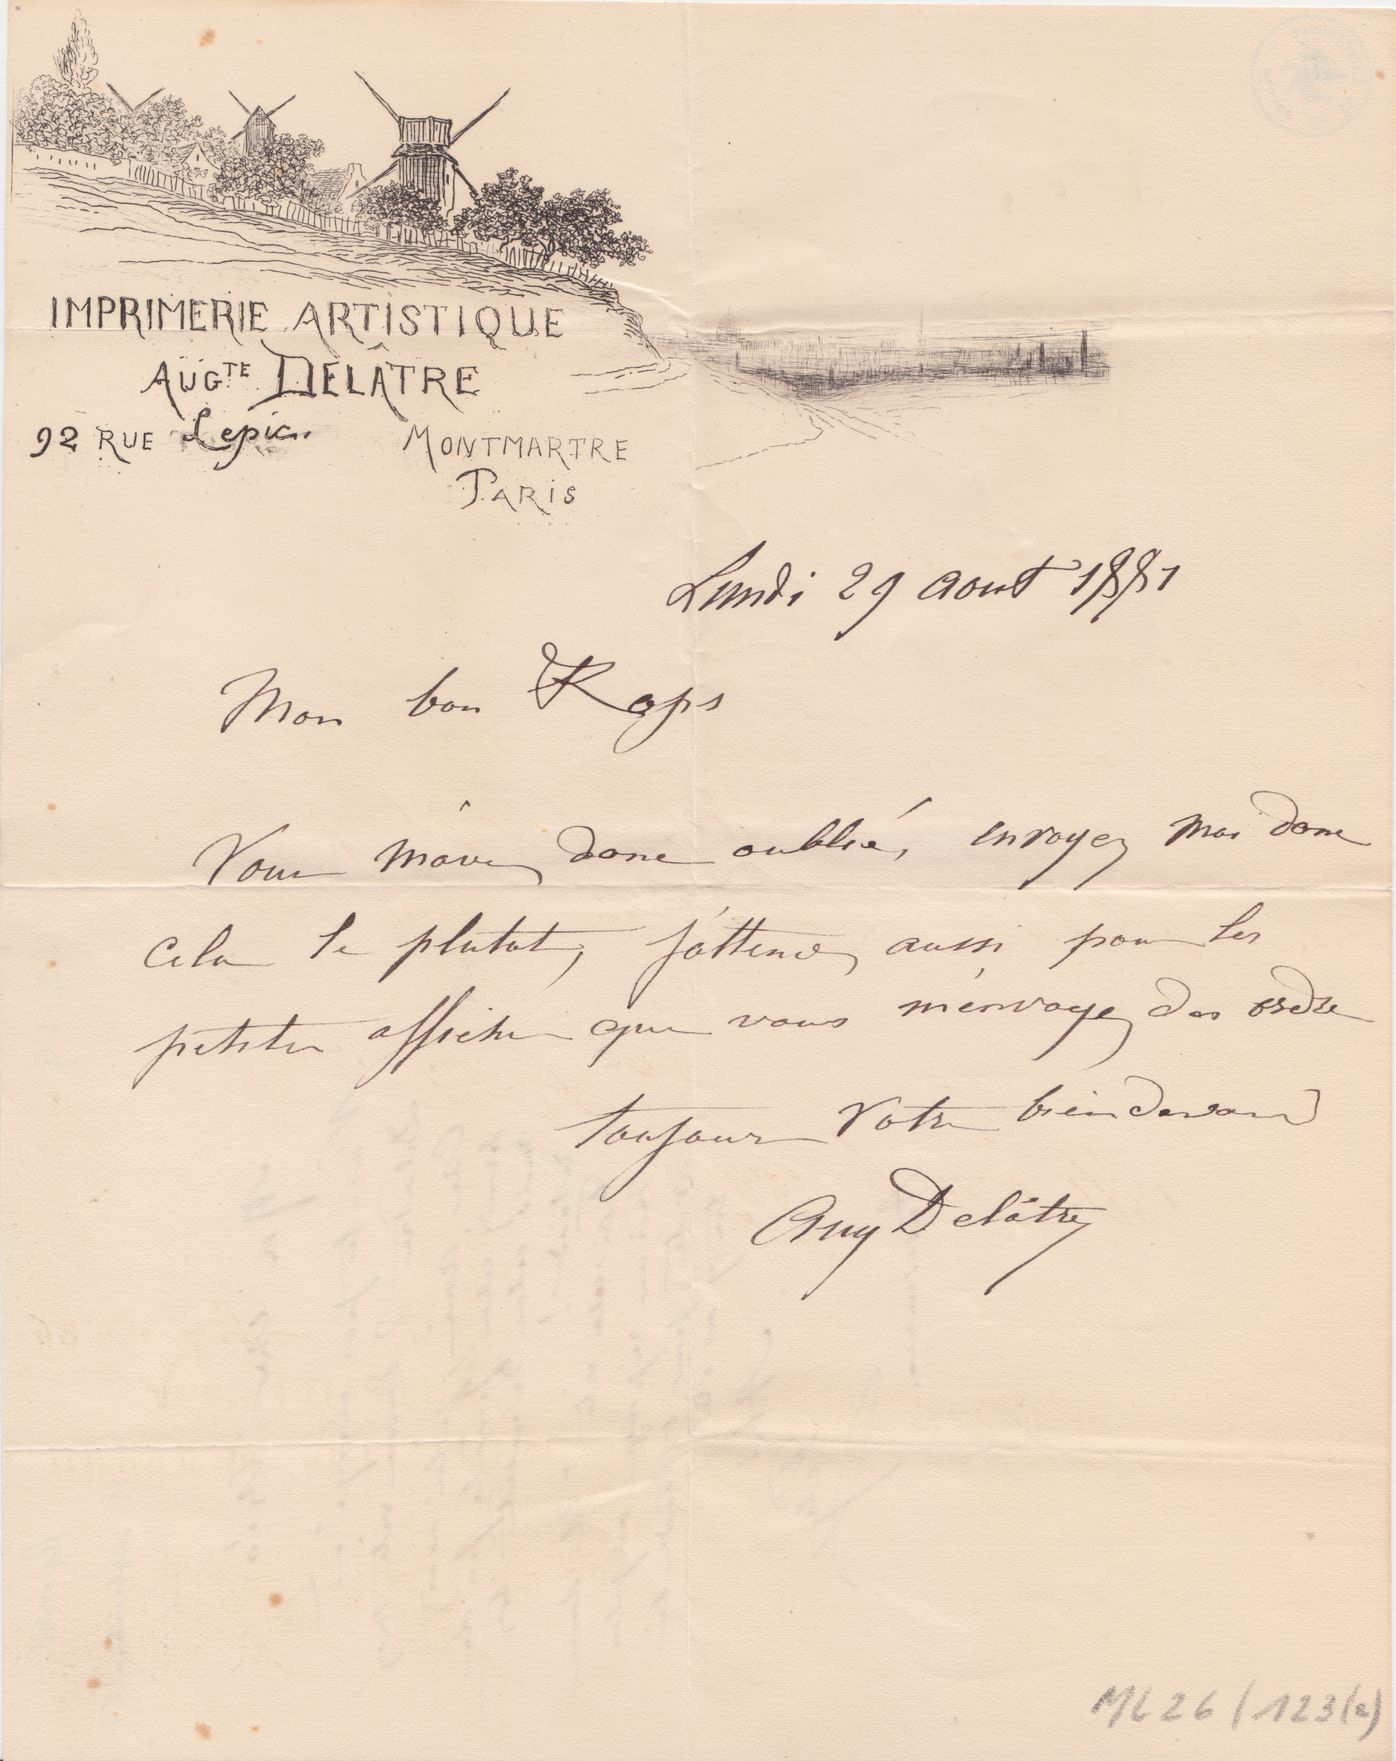 IMPRIMERIE ARTISTIQUE
AUGTE DELÂTRE
92 RUE Lepic..
MONTMARTRE
PARIS
Lundi 29 aout 1881
Mon bon Rops
Vous m'avez donc oublié, envoyez moi donc
cela le plutot, j'attends aussi pour les
petites affiches que vous m'envoyez des ordre
toujours votre bien devoué
Aug Delâtre
ML 26/123(a)